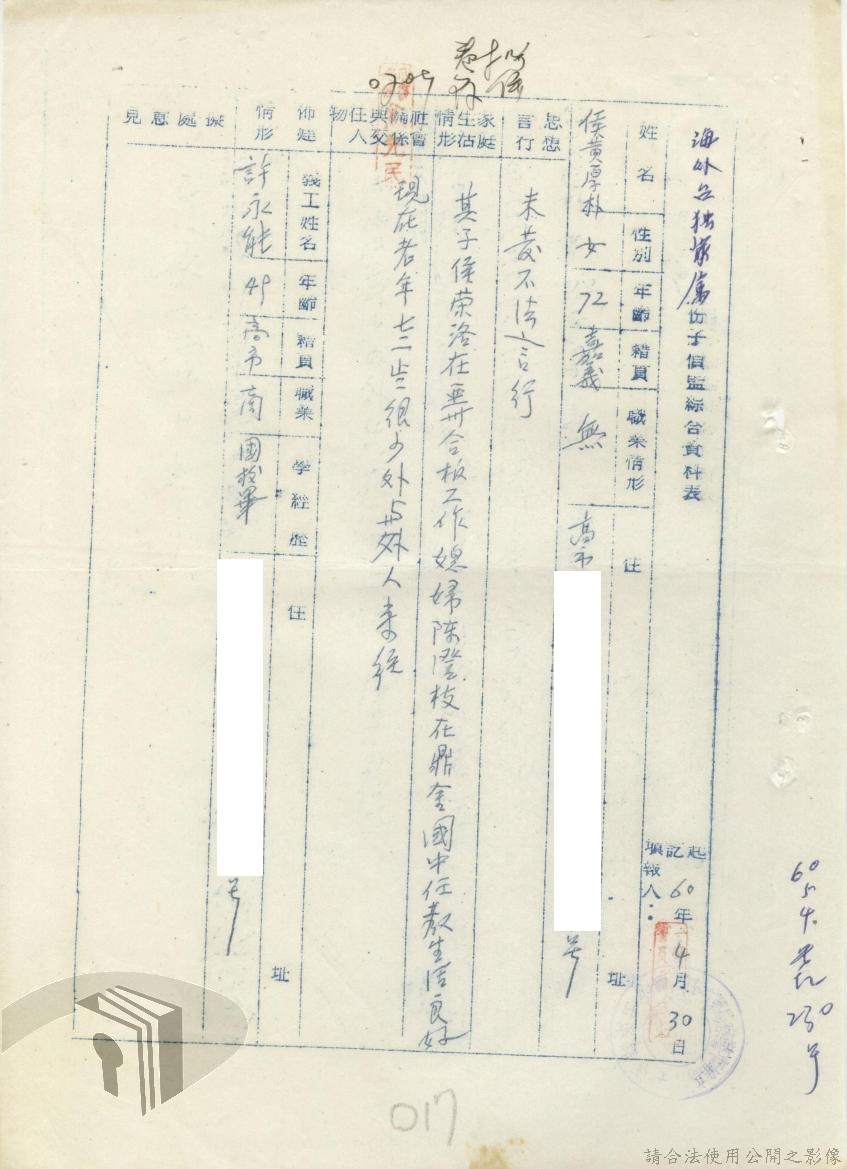 海外台独家属份子偵監綜合資料表
起記60年4月30日
填報人：
姓名 性別 年齡 籍貫 職業情形 住址
侯黃厚朴 女 72 嘉義 無 高市 号
思想言行
未發不法之言行
家庭生活情形
其子侯荣洛在 合板工作媳婦陈澄枝在鼎金國中任教生活良好
社會關係與交往人物
現在老年七二歲很少外与外人來往
佈建情形
義工姓名 年齡 籍貫 職業 學經歷 住址
許永能 49 高市 商 國校畢 号
擬處意見
017
請合法使用公開之影像